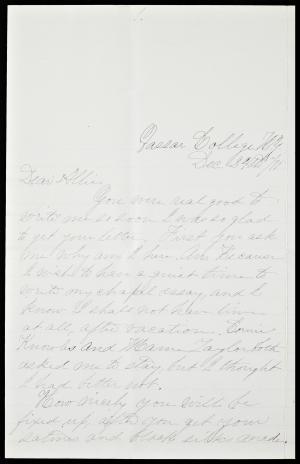 Vassar College N.Y.
Dec 24th/71
Dear Allie,
You were real good to
write me so soon I was so glad
to get your letter. First you ask
me why am I here. Ans. Because
I wish to have a quiet time to
write my chapel essay, and I
know I shall not have time
at all, after vacation.
Knowles and Mamie Taylor both
asked me to stay, but I thought
I had better not.
How nicely you will be
fixed up, after you get your
satines and black silks made.